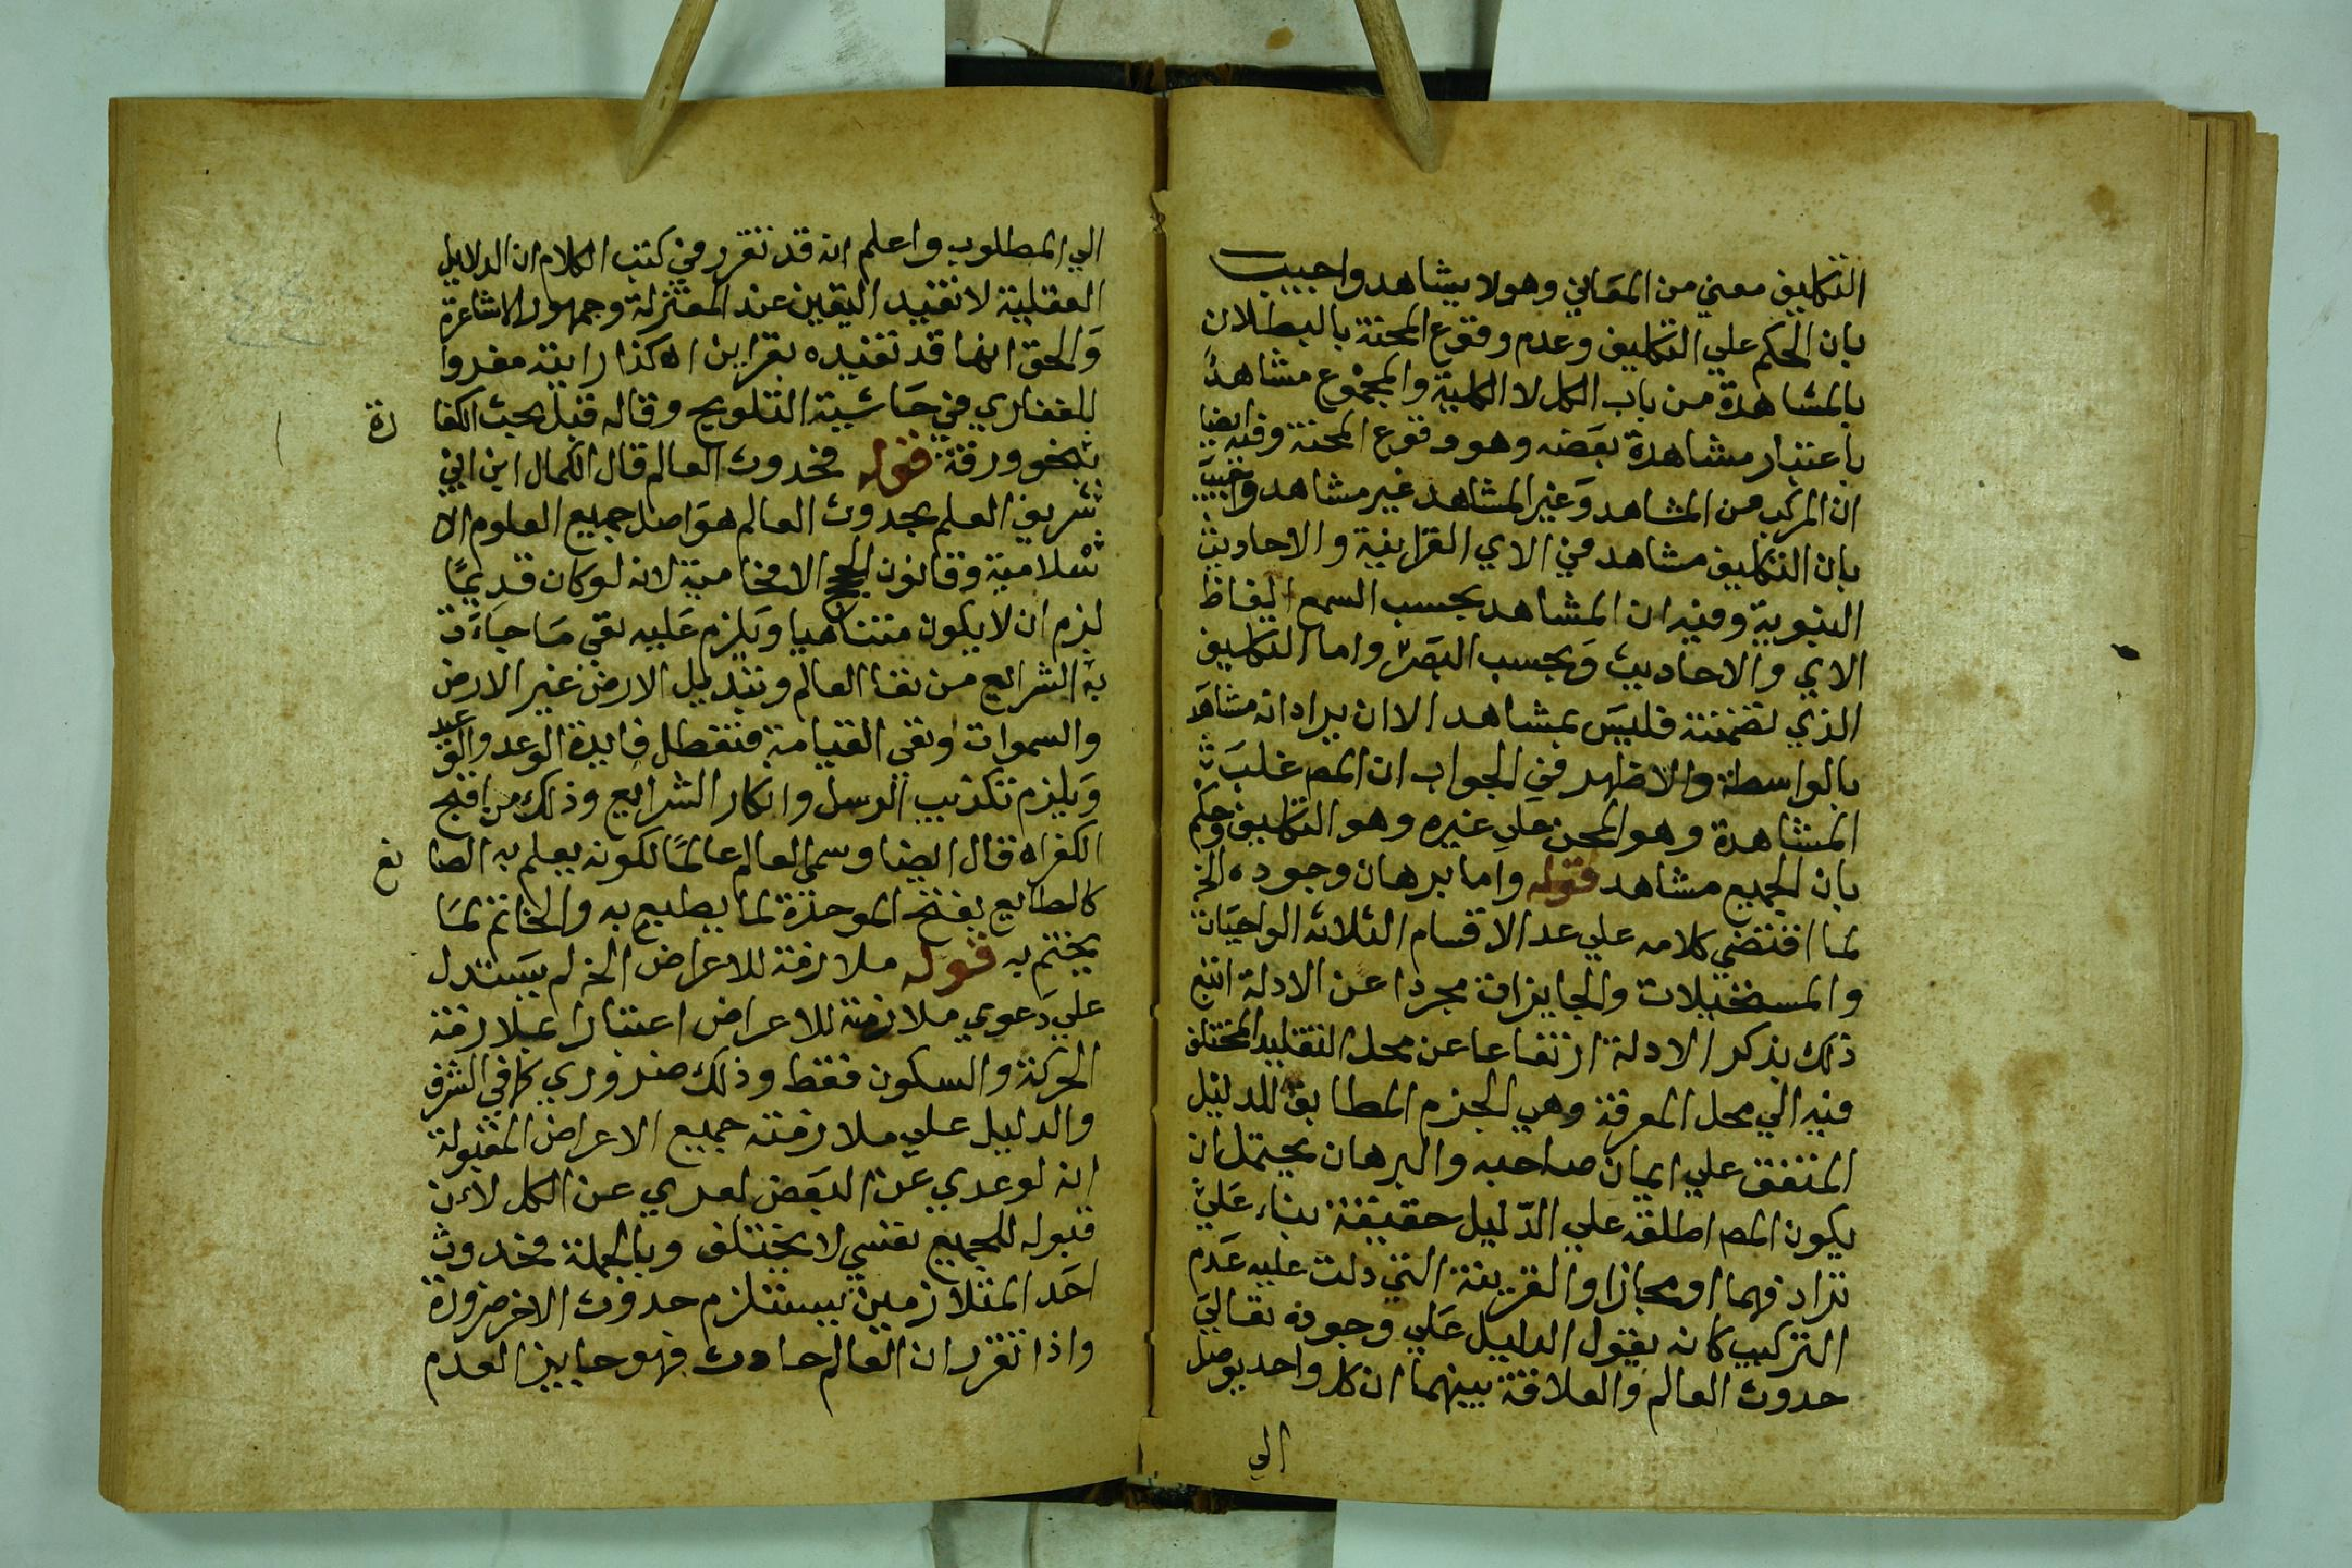 التكليف معني من المعاني وهو لا يشاهد واجيب
بان الحكم علي التكليف وعدم وقوع المحنة بالبطلان
بالمشاهدة من باب الكل لا الكلية والمجموع مشاهد
باعتبار مشاهدة بعضه وهو وقوع المحنة وفيه ايضا
ان المركب من المشاهد وغير المشاهد غير مشاهد واجيب
بان التكليف مشاهد في الاي القرانية والاحاديث
النبوية وفيه ان المشاهد بحسب السمع الفاظ
الاي والاحاديث وبحسب البصر واما التكليف
الذي تضمنته فليس بمشاهد الا ان يراد انه مشاهد
بالواسطة والاظهر في الجواب ان المص غلب
المشاهدة وهو المحن علي غيره وهو التكليف وحكم
بان الجميع مشاهد قوله واما برهان وجوده الخ
لما اقتضي كلامه علي عد الاقسام الثلاثه الواجبات
والمستحيلات والجايزات مجردا عن الادلة اتبع
ذلك بذكر الادلة ارتفاعا عن محل التقليد المختلف
فيه الي محل المعرفة وهي الجزم المطابق للدليل
المتفق علي ايمان صاحبه والبرهان يحتمل ان
يكون المص اطلقه علي الدليل حقيقة بناء علي
ترادفهما او مجازا والقرينة التي دلت عليه عدم
التركيب كانه يقول الدليل علي وجوده تعالي
حدوث العالم والعلاقة بينهما ان كل واحد يوصل
الي
الي المطلوب واعلم انه قد تقرر في كتب الكلام ان الدلايل
العقلية لا تفيد اليقين عند المعتزلة وجمهور الاشاعرة
والحق انها قد تفيده بقراين اه كذا رايته معزوا
للغفاري في حاشية التلويح وقاله قبل بحث الكفا رة
بنحو ورقة قوله فحدوث العالم قال الكمال ابن ابي
شريف العلم بحدوث العالم هو اصل جميع العلوم الا
سلامية وقانون الحجج الافحامية لانه لو كان قديمًا
لزم ان لا يكون متناهيا ويلزم عليه نفي ما جاءت
به الشرائع من فنا العالم وتبديل الارض غير الارض
والسموات ونفي القيامة فتعطل فايدة الوعد والوعيد
ويلزم تكذيب الرسل وانكار الشرايع وذلك من اقبح
الكفر اه قال ايضا وسمي العالم عالمًا لكونه يعلم به الصا نع
كالطابع بفتح الموحدة لما يطبع به والخاتم لما
يختم به قوله ملازمة للاعراض الخ لم يستدل
علي دعوي ملازمته للاعراض اعتبارا بملازمة
الحركة والسكون فقط وذلك ضروري كما في الشرف
والدليل علي ملازمته جميع الاعراض المقبولة
انه لو عري عن البعض لعري عن الكل لان
قبوله للجميع نفسي لا يختلف وبالجملة فحدوث
احد المتلازمين يستلزم حدوث الاخر ضرورة
واذا تقرر ان العالم حادث فهو جايز العدم